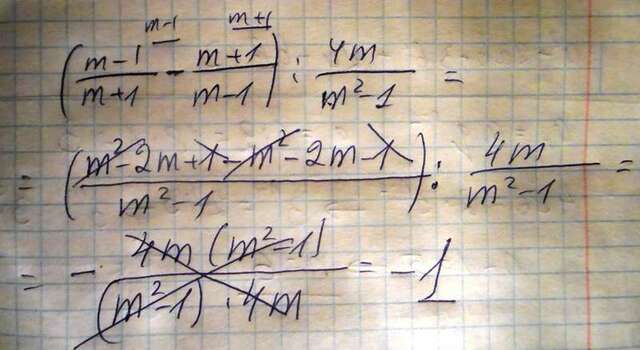 m-1 m+1
(m-1/m+1 - m+1/m-1) : 4m/m²-1 =
= (m²-2m+1-m²-2m-1/m²-1) : 4m/m²-1 =
= - 4m(m²-1)/(m²-1)·4m = -1